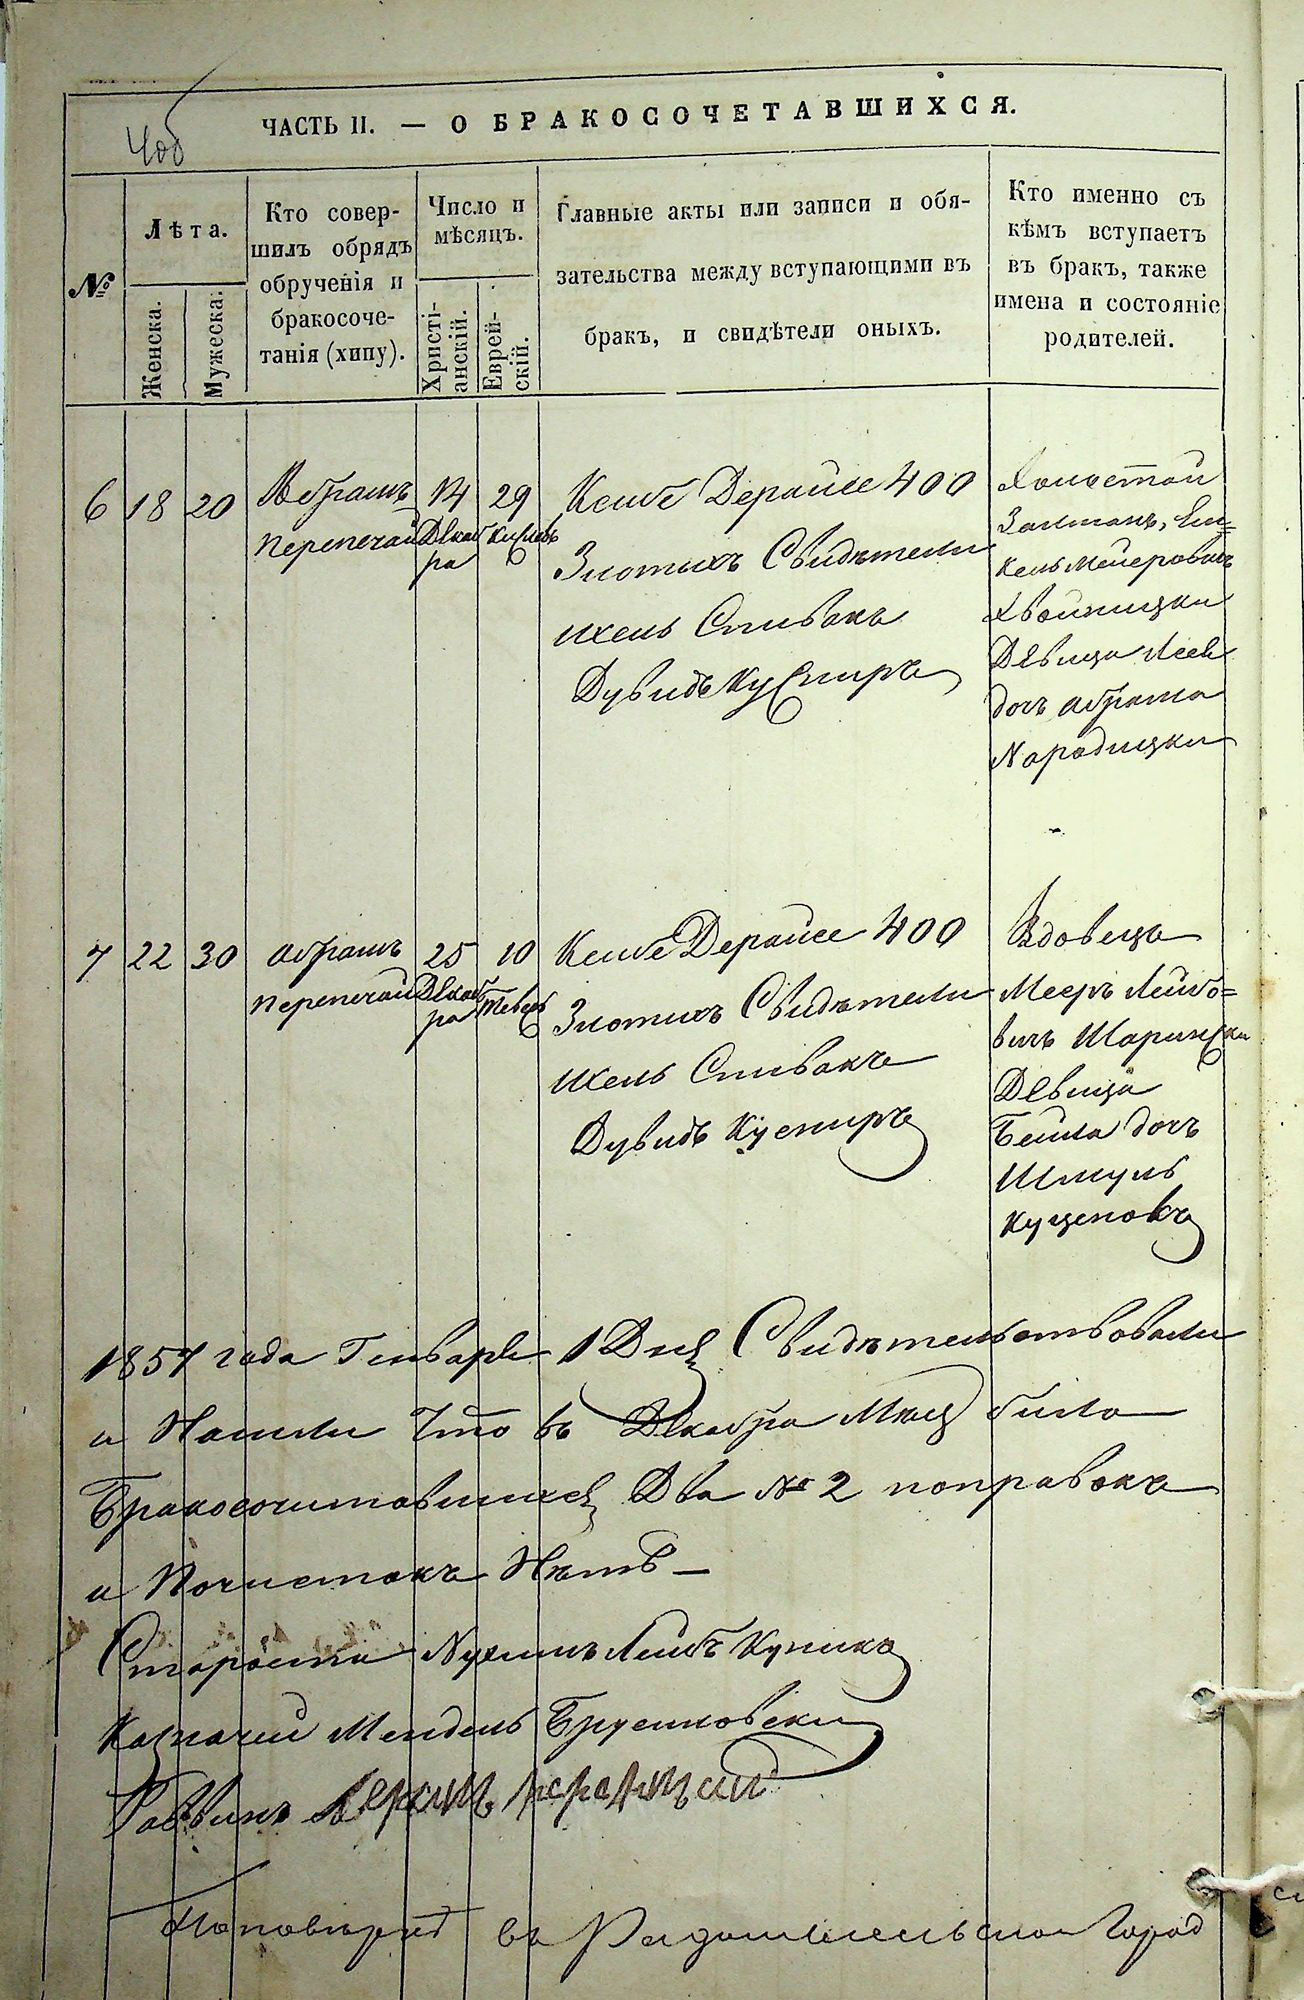 ЧАСТЬ II. — О БРАКОСОЧЕТАВШИХСЯ.
№
Лѣта.
Женска.
Мужеска.
Кто совер-
шилъ обрядъ
обрученія и
бракосоче-
танія (хипу).
Число и
мѣсяцъ.
Христі-
анскій.
Еврей-
скій.
Главные акты или записи и обя-
зательства между вступающими въ
бракъ, и свидѣтели оныхъ.
Кто именно съ
кѣмъ вступаетъ
въ бракъ, также
имена и состояніе
родителей.
6 18 20
Абрамъ
Перепечай
14
Декаб
ра
29
Кислевъ
Ксибе Дерайсе 400
Злотыхъ Свидѣтели
Ихель Спивакъ
Дувидъ Кусниръ
Холостой
Залманъ, Ен=
кель Меееровичъ
Хвойницки
Девица Лея
дочъ Абрама
Народицки
7 22 30
Абрамъ
Перепечай
25
Декаб
ра
10
Тевесъ
Ксибе Дерайсе 400
Злотихъ Свидѣтели
Ихель Спивакъ
Дувидъ Кусниръ
Вдовецъ
Мееръ Лейбо=
вичъ Шарински
Девица
Бейла дочъ
Шмуль
Куценокъ
1857 года Генваря 1 Дня Свидѣтельствовали
и Нашли Что въ Декабра Мцѣ било
Бракосочитавшихся Два № 2 поправокъ
и Почистокъ Нѣтъ —
Староста Нухимъ Лейбъ Куликъ
Казначей Мендель Брусиловски
Раввинъ
въ Радомисльской Город